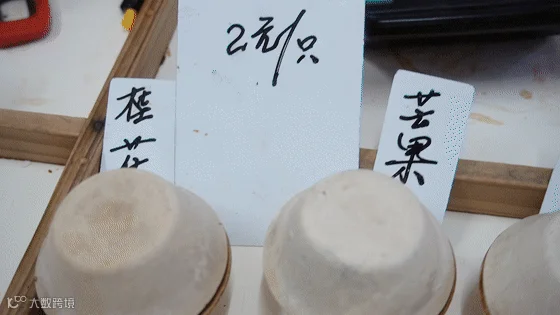 2元/只
桂花
芒果
大数跨境